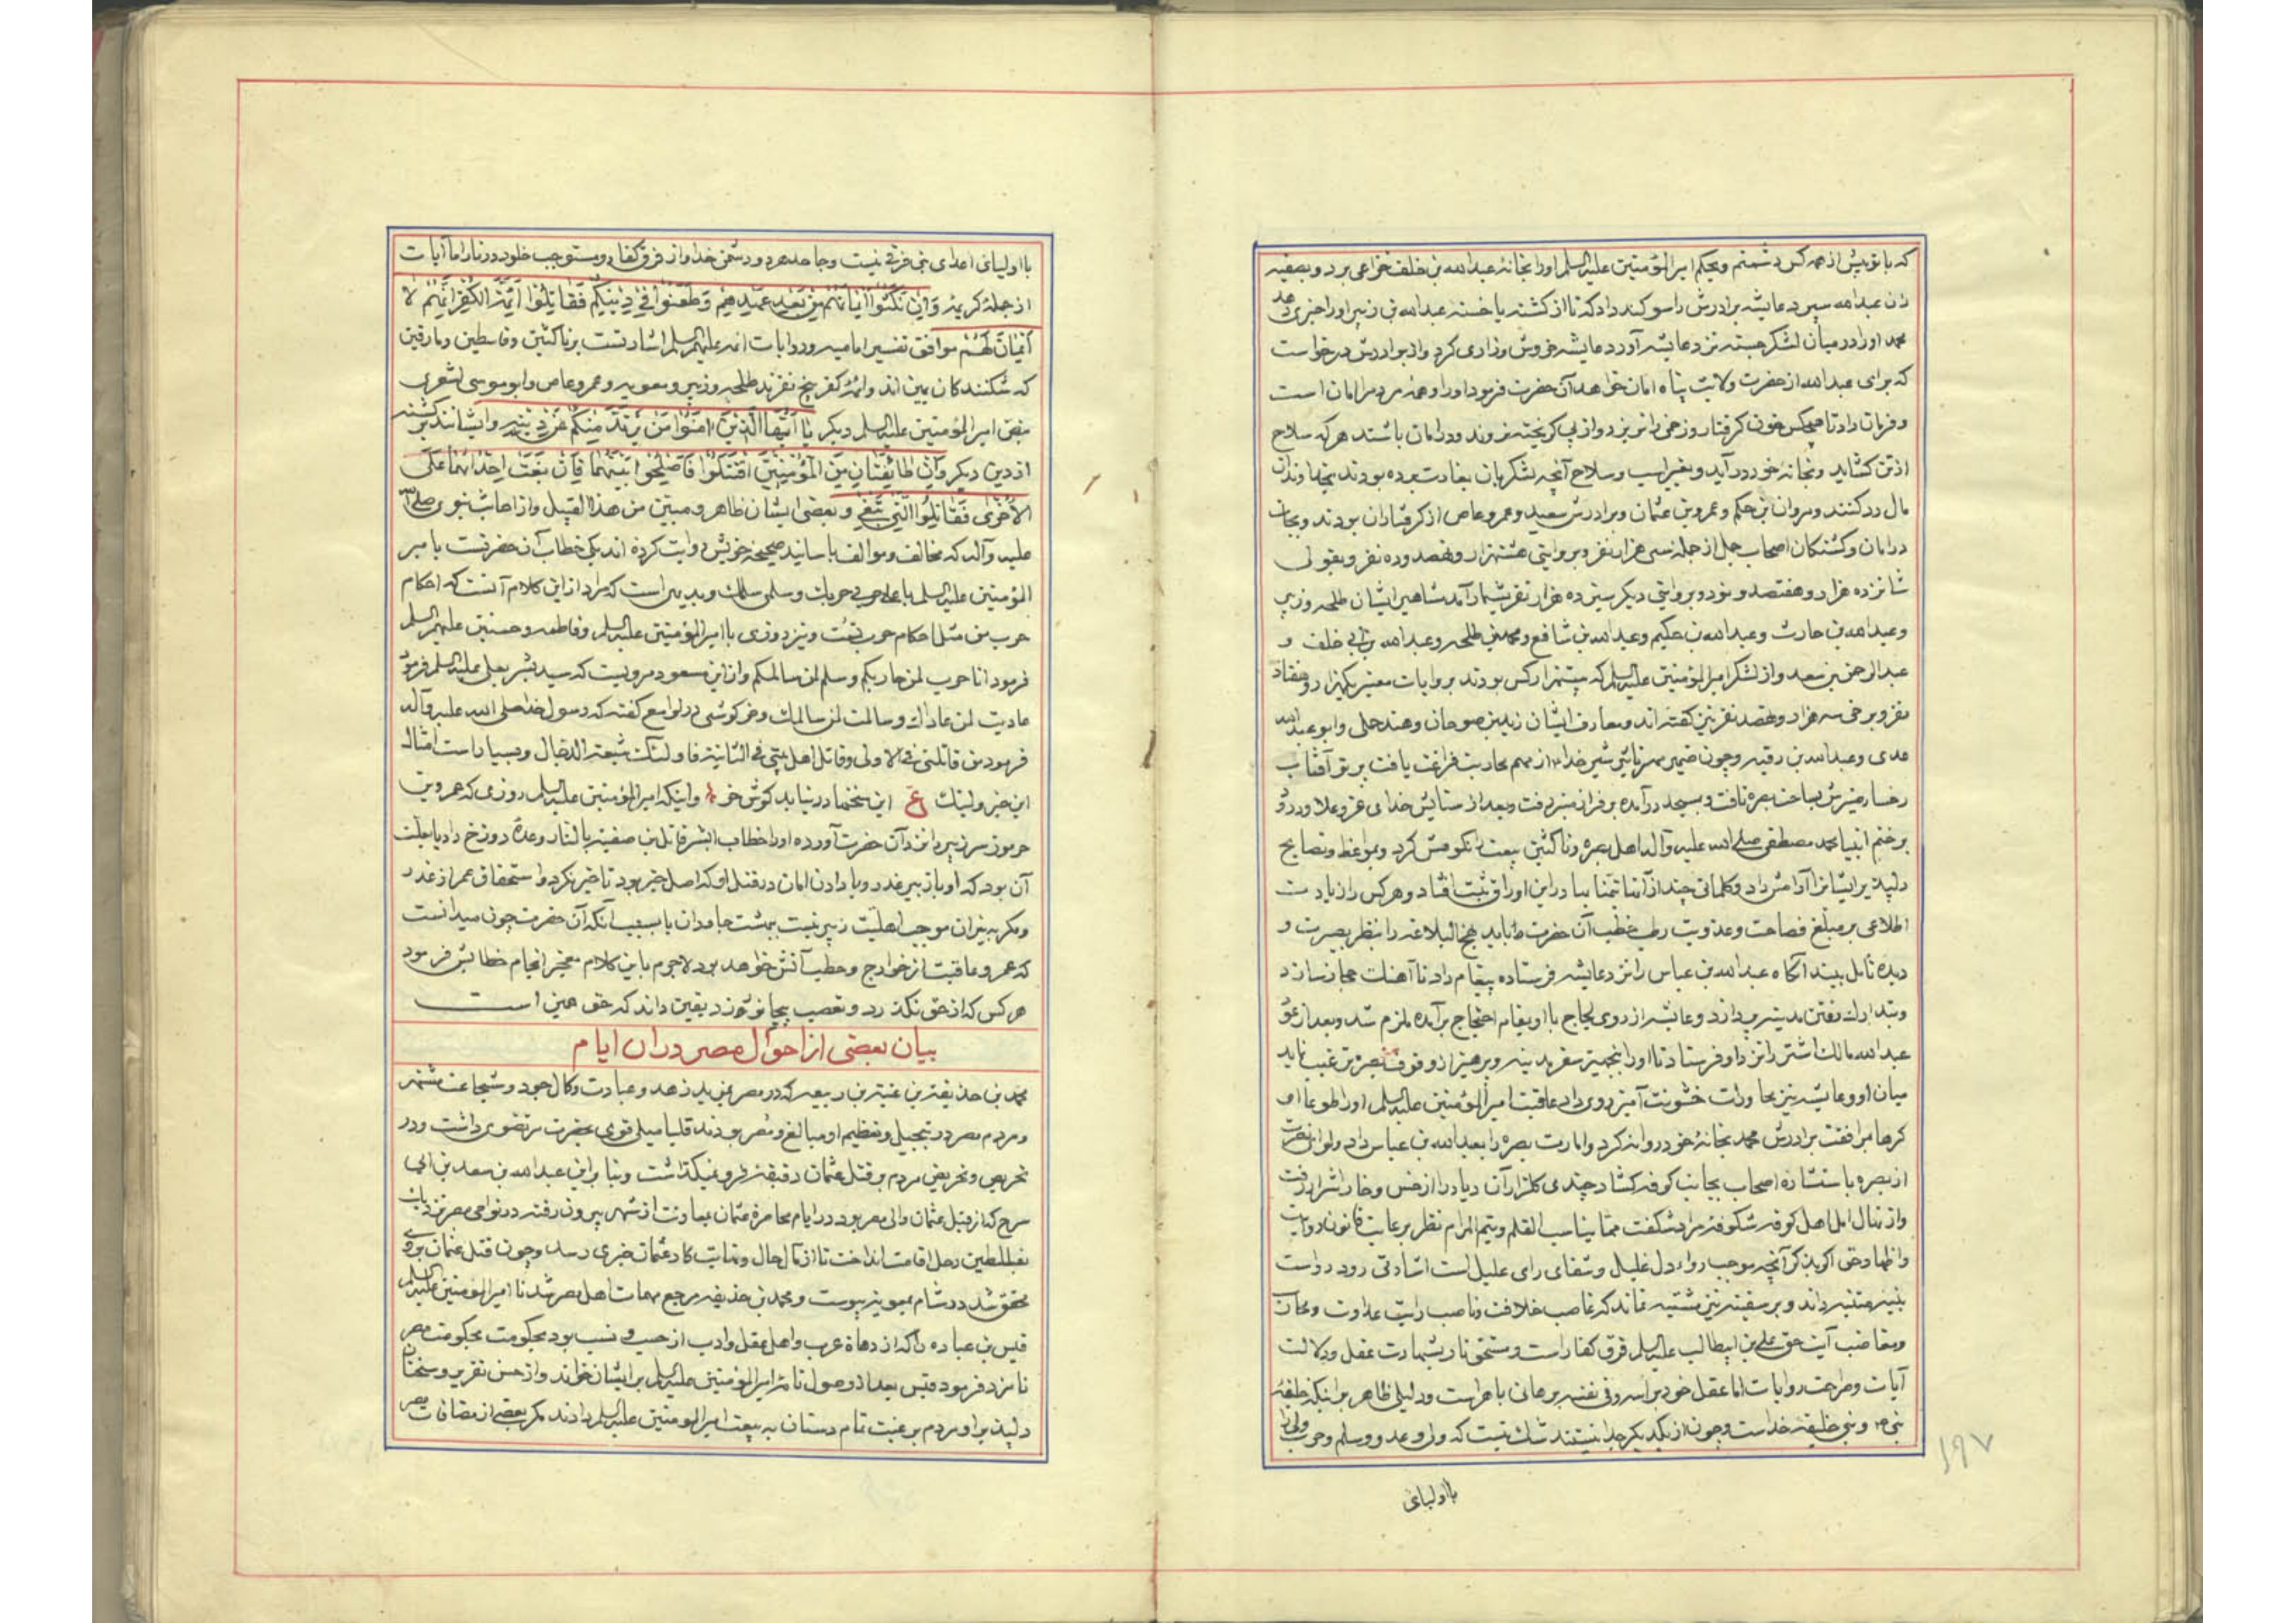 که با تو بیش از همه کس دشمنم و بحکم امیر المؤمنین علیه السلم او را بخانهٔ عبدالله بن خلف خزاعی برد و بصفیه
زن عبدالله سپرد عایشه برادرش را سوکند داد که تا از کشته یا خسته عبدالله بن زبیر او را خبری دهد
محمد او را در میان لشکر جسته نزد عایشه آورد عایشه خروش و زاری کرد و از برادرش درخواست
که برای عبدالله از حضرت ولایت پناه امان خواهد آن حضرت فرمود او را و همه مردم را امان است
و فرمان داد تا هیچکس خون کرفتار و زخمی را نریزد و از پی کریخته نروند و در امان باشند هر که سلاح
از تن کشاید و بخانهٔ خود در آید و بغیر اسب و سلاح آنچه لشکریان بغارت برده بودند
مال رد کنند و مروان بن حکم و عمرو بن عثمان و برادرش سعید و عمرو عاص از کرفتاران بودند و بجان
در امان و کشتکان اصحاب جمل از جمله سی هزار نفر و بروایتی هشتهزار و هفصد و ده نفر و بقولی
شانزده هزار و هفتصد و نود و بروایتی دیکر سیزده هزار نفر بشمار آمد مشاهیر ایشان طلحه و زبیر
و عبدالله بن حارث و عبدالله بن حکیم و عبدالله بن شافع و محمد بن طلحه و عبدالله بن ابی خلف و
عبدالرحمن بن سعد و از لشکر امیر المؤمنین علیه السلم که بیستهزار کس بودند بروایات معتبر یکهزار و هفتاد
نفر و برخی سه هزار و هفصد نفر نیز کفته اند و معارف ایشان زید بن صوحان و هند جملی و ابو عبدالله
عبدی و عبدالله بن رقیه و چون ضمیر شیر خدا از مهم محاربت فراغت یافت پرتو آفتاب
رخسار منیرش بساحت بصره تافت و بمسجد در آمده بر فراز منبر رفت و بعد از ستایش خدای عز و علا و درود
بر ختم انبیا محمد مصطفی صلی الله علیه و آله اهل بصره و ناکثین بیعت را نکوهش کرد و بمواعظ و نصایح
دلپذیر ایشانرا آرامش داد و کلماتی چند از آنها تیمنا بیا در این اوراق ثبت افتاد و هر کس را زیادت
اطلاعی بر مبلغ فصاحت و عذوبت رطب خطب آن حضرت باید نهج البلاغه را بنظر بصیرت و
دیده تامل بیند آنکاه عبدالله بن عباس را نزد عایشه فرستاده پیغام داد تا آهنک حجاز سازد
و بتدارک رفتن مدینه پردازد و عایشه از روی لجاج با او بمقام احتجاج بر آمده ملزم شد و بعد از عود
عبدالله مالک اشتر را نزد او فرستاد تا او را بتجهیز سفر مدینه و پرهیز از وقوف بصره ترغیب نماید
میان او و عایشه نیز محاورات خشونت آمیز روی داد عاقبت امیر المؤمنین علیه السلم او را طوعا او
کرها بمرافقت برادرش محمد بخانهٔ خود روانه کرد و امارت بصره را بعبدالله بن عباس داد و لوای نصرت
از بصره باستشاره اصحاب بجانب کوفه کشاد چندی کلزار آن دیار را از خس و خار اشرار رفت
و از نهال امل اهل کوفه شکوفهٔ مراد شکفت مما یناسب القلم و یتم المرام نظر برعایت قانون روایت
و اظهار حق اکر بذکر آنچه موجب رواء دل غلیل و شفای رای علیل است اشارتی رود رواست
بنبیه متنبه داند و بر سفیه نیز مشتبه نماند که غاصب خلافت و ناصب رایت عداوت و محارب
و مغاضب آیت حق علی بن ابیطالب علیه السلم فرق کفار است و مستحق نار بشهادت عقل و دلالت
آیات و صراحت روایات اما عقل خود براسه و فی نفسه برهانی باهر است و دلیلی ظاهر بر اینکه خلیفهٔ
نبی و نبی خلیفهٔ خداست و چون از یکدیکر جدا نیستند شک نیست که ولی و عدو و سلم و حرب ولی را
با اولیای
۱۹۷
با اولیای اعدای نبی فرقی نیست و جاحد هر دو دشمن خدا و از فرق کفار و مستوجب خلود در نار اما آیات
از جمله کریمهٔ وَاِنْ نَکَثُوا اَیْمَانَهُمْ مِنْ بَعْدِ عَهْدِهِمْ وَطَعَنُوا فِی دِینِکُمْ فَقَاتِلُوا اَئِمَّةَ الْکُفْرِ اِنَّهُمْ لَا
اَیْمَانَ لَهُمْ موافق تفسیر امامیه و روایات ائمه علیهم السلم اشارتست برناکثین و قاسطین و مارقین
که شکنندکان یمین اند و ائمهٔ کفر پنج نفرند طلحه و زبیر و معویه و عمرو عاص و ابو موسی اشعری
بنص امیر المؤمنین علیه السلم دیکر یَا اَیُّهَا الَّذِینَ اٰمَنُوا مَنْ یَرْتَدَّ مِنْکُمْ عَنْ دِینِهِ و ایشانند برکشته
از دین دیکر وَاِنْ طَائِفَتَانِ مِنَ الْمُؤْمِنِینَ اقْتَتَلُوا فَاَصْلِحُوا بَیْنَهُمَا فَاِنْ بَغَتْ اِحْدَاهُمَا عَلَی
الْاُخْرٰی فَقَاتِلُوا الَّتِی تَبْغِی و بغضی ایشان ظاهر و مبین من هذا القبیل و از احادیث نبوی صلی الله
علیه و آله که مخالف و موالف باسانید صحیحهٔ خویش روایت کرده اند یکی خطاب آن حضرتست با میر
المؤمنین علیه السلم یا علی حربی حربک و سلمی سلمک و بدیهی است که مراد از این کلام آنست که احکام
حرب من مثل احکام حرب تست و نیز روزی با امیر المؤمنین علیه السلم و فاطمه و حسنین علیهم السلم
فرمود انا حرب لمن حاربکم و سلم لمن سالمکم و از ابن مسعود مرویست که سید بشر بعلی علیه السلم فرمود
عادیت لمن عاداک و سالمت لمن سالمک و خرکوشی در لوامع کفته که رسول خدا صلی الله علیه و آله
فرمود من قاتلنی فی الاولی و قاتل اهل بیتی فی الثانیة فاولئک شیعة الدجال و بسیار است امثال
این خبر ولیک ع این سخنها در نیاید کوش خر و اینکه امیر المؤمنین علیه السلم روزی که عمرو بن
جرموز سر زبیر را نزد آن حضرت آورده او را خطاب ابشر قاتل بن صفیة بالنار وعدهٔ دوزخ داد یا بعلت
آن بود که او با زبیر غدر و با دادن امان در قتل او که اصل خیر بود تاخیر نکرد و استحقاق عمر از غدر
و مکر به نیران موجب اهلیت زبیر نیست بهشت جاودان یا بسبب آنکه آن حضرت چون میدانست
که عمرو عاقبت از خوارج و حطب آتش خواهد بود لاجرم باین کلام معجز انجام خطابش فرمود
هر کس که از حق نکذرد و تعصب بیجا نورزد یقین داند که حق همین است
بیان بعضی از احوال مصر دران ایام
محمد بن حذیفة بن عتبة بن ربیعه که در مصر بمزید زهد و عبادت و کمال جود و شجاعت مشتهر
و مردم مصر در تبجیل و تعظیم او مبالغ و مصر بودند قلبا میلی قوی بحضرت مرتضوی داشت و در
تحریص و تحریض مردم بر قتل عثمان دقیقهٔ فرو نمیکذاشت و بنا براین عبدالله بن سعد بن ابی
سرح که از قبل عثمان والی مصر بود در ایام محاصرهٔ عثمان بمعاونت از شهر بیرون رفته در نواحی مصر نزدیک
بفلسطین رحل اقامت انداخت تا از مآل حال و نهایت کار عثمان خبری رسد و چون قتل عثمان بروی
محقق شد در شام بمعویه پیوست و محمد بن حذیفه مرجع مهمات اهل مصر شد تا امیر المؤمنین علیه السلم
قیس بن عباده را که از دهاة عرب و اهل عقل و ادب از حسب و نسب بود بحکومت بحکومت مصر
نامزد فرمود قیس بعد از وصول نامهٔ امیر المؤمنین علیه السلم بر ایشان خواند و از حسن تقریر و سخنان
دلپذیر او مردم برغبت تمام دستان به بیعت امیر المومنین علیه السلم دادند مکر بعضی از مضافات مصر